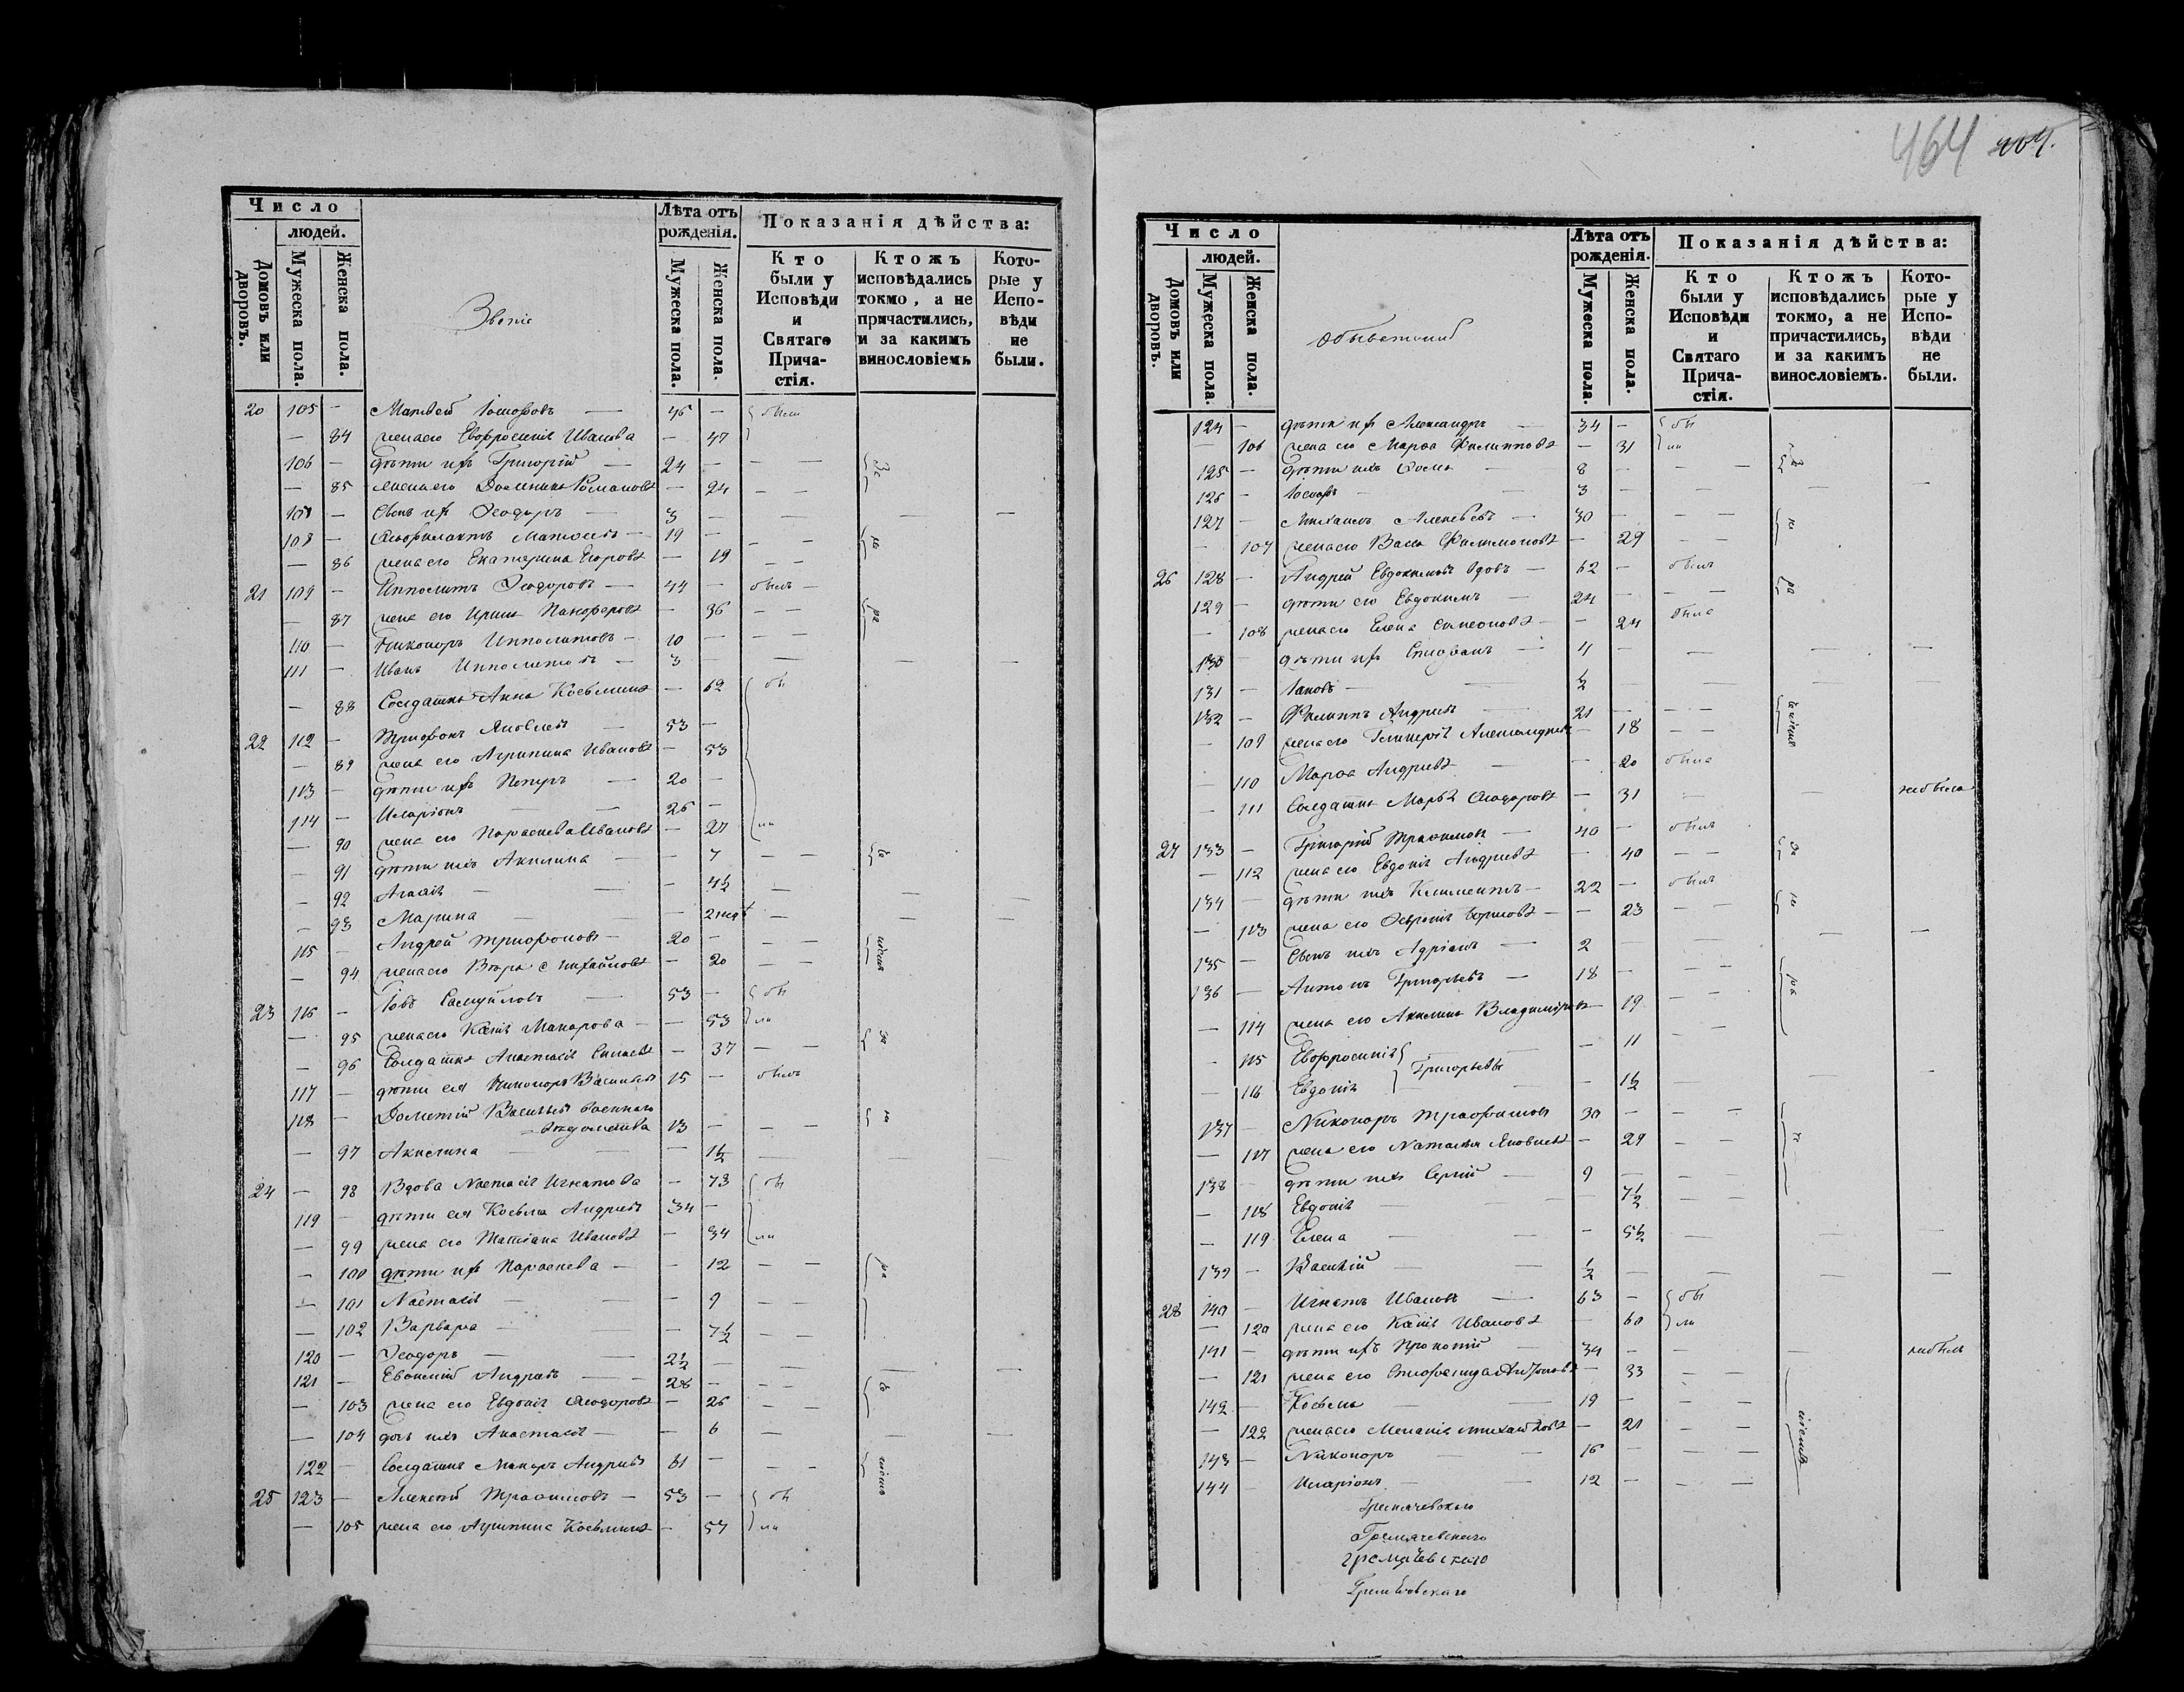 464 404.
Число
людей.
Домовъ или дворовъ.
Мужеска пола.
Женска пола.
Званіе
Лѣта отъ рожденія.
Мужеска пола.
Женска пола.
Показанія дѣйства:
Кто были у Исповѣди и Святаго Причастія.
Ктожъ исповѣдались токмо, а не причастились, и за какимъ винословіемъ
Которые у Исповѣди не были.
20 105 — Матвей Іосифовъ — 46 — были
— 84 жена его Евфросинія Иванова — 47
106 — дѣти ихъ Григорій — 24 — — —
— 85 жена его Домника Романова — 24 — —
107 — Сынъ их Ѳеодоръ — 3 — — — —
108 — Ѳеофилактъ Матвѣевъ — 19 — — —
— 86 жена его Екатерина Егорова — 19 — —
21 109 — Ипполитъ Ѳеодоровъ — 44 — былъ —
— 87 жена его Ирина Панферова — 36 — —
110 — Никоноръ Ипполитовъ — 10 — — —
111 — Иванъ Ипполитовъ — 3 — — — —
— 88 Солдатка Анна Косьмина — 62 бы
22 112 — Трифонъ Яковлевъ — 53 —
— 89 жена его Агрипина Иванова — 53
113 — дѣти ихъ Петръ — 20 —
114 — Иларіонъ — — 26 —
— 90 жена его Параскева Иванова — 27 ли
— 91 дѣти ихъ Акилина — — 7 — —
— 92 Агафія — — — 4½ — — —
— 93 Марина — — 2 нед — — —
115 — Андрей Трифоновъ — 20 — — —
— 94 жена его Михайлова — 20 — —
23 116 — Іовъ Самуиловъ — 53 — бы
— 95 жена его Ксенія Макарова — — 53 ли
— 96 Солдатка Анастасія — 37 — —
117 — дѣти ея Никоноръ Васильевъ 15 — былъ
118 — Дометій Васильевъ военнаго
вѣдомства 13 — — —
— 97 Акилина — — — 1½ — — —
24 — 98 Вдова Настасія Игнатова — 73 бы
119 — дѣти ея Косьма Андреевъ 34 —
— 99 жена его Татіана Иванова — 34 ли
— 100 дѣти ихъ Параскева — — 12 — —
— 101 Настасія — — — 9 — —
— 102 Варвара — — — 7½ — —
120 — Ѳеодоръ — — 2½ — — — —
121 — Евсигній Андреевъ — — 28 — — —
— 103 жена его Евдокія Ѳеодорова — 26 — —
— 104 дочь ихъ Анастасія — — 6 — — —
122 — Солдатъ Макаръ Андреевъ 61 — — —
25 123 — Алексѣй Трофимовъ — 53 — бы
— 105 жена его Агрипина Косьмина — 57 ли
Число
людей.
Домовъ или дворовъ.
Мужеска пола.
Женска пола.
Лѣта отъ рожденія.
Мужеска пола.
Женска пола.
Показанія дѣйства:
Кто были у Исповѣди и Святаго Причастія.
Ктожъ исповѣдались токмо, а не причастились, и за какимъ винословіемъ.
Которые у Исповѣди не были.
124 — дѣти их Александръ — 34 — бы
— 106 жена его Марѳа Филиппова — 31 ли
125 — дѣти ихъ Ѳома — 8 — — —
126 — Іосифъ — — 3 — — — —
127 — Михаилъ Алексѣевъ — 30 — — —
— 107 жена его Васса Филимонова — 29 — —
26 128 — Андрей Евдокимовъ вдовъ — 62 — былъ
129 — дѣти его Евдокимъ — 24 — — —
— 108 жена его Елена Симеонова — — 24 была
130 — дѣти ихъ Стефанъ — 4 — — — —
131 — Іаковъ — — ½ — — — —
132 — Филиппъ Андреевъ — 21 — — —
— 109 жена его Гликерія Александрова — 18 — —
— 110 Марѳа Андреева — — 20 была
— 111 Солдатка Марья Ѳеодорова — 31 — — небыла
27 133 — Григорій Трофимовъ — 40 — былъ
— 112 жена его Евдокія Андреева — 40 — —
134 — дѣти ихъ Климентъ — 22 — былъ
— 113 жена его Ѳевронія — — 23 — —
135 — Сынъ ихъ Адріанъ — 2 — — — —
136 — Антонъ Григорьевъ — 18 — — —
— 114 жена его Акилина Владимірова — 19 — —
— 115 Евфросинія — — 11 — —
Григорьевы
— 116 Евдокія — — 1½ — — —
137 — Никоноръ Трофимовъ 30 — — —
— 117 жена его Наталья Яковлева — 29 — —
138 — дѣти ихъ Сергій — 9 — —
— 118 Евдокія — — — 7½ — —
— 119 Елена — — — 5½ — — —
139 — Василій — — ½ — — — —
28 140 — Игнатъ Ивановъ — 63 — бы
— 120 жена его Ксенія Иванова — 60 ли
141 — дѣти ихъ Прокопій — 34 — — — небылъ
— 121 жена его Стефанида — 33 — —
142 — Косьма — — 19 — — —
— 122 жена его Меланія Михайлова — 21 — —
143 — Никоноръ — 16 — — —
144 — Иларіонъ — — 12 — — —
Гремячевскаго
Гремячевскаго
гремячевскаго